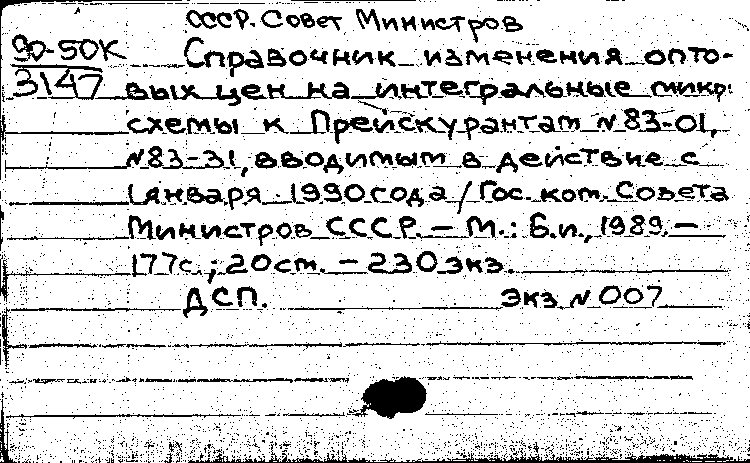 СССР. Совет Министров
90-50К
3147
Справочник изменения опто-
вых цен на интегральные микро
схемы к Прейскурантам №83-01,
№83-31, вводимым в действие с
1 января 1990 года / Гос. ком. Совета
Министров СССР. – М.: Б.и., 1989. –
177с.; 20см. – 230 экз.
ДСП. Экз. № 007